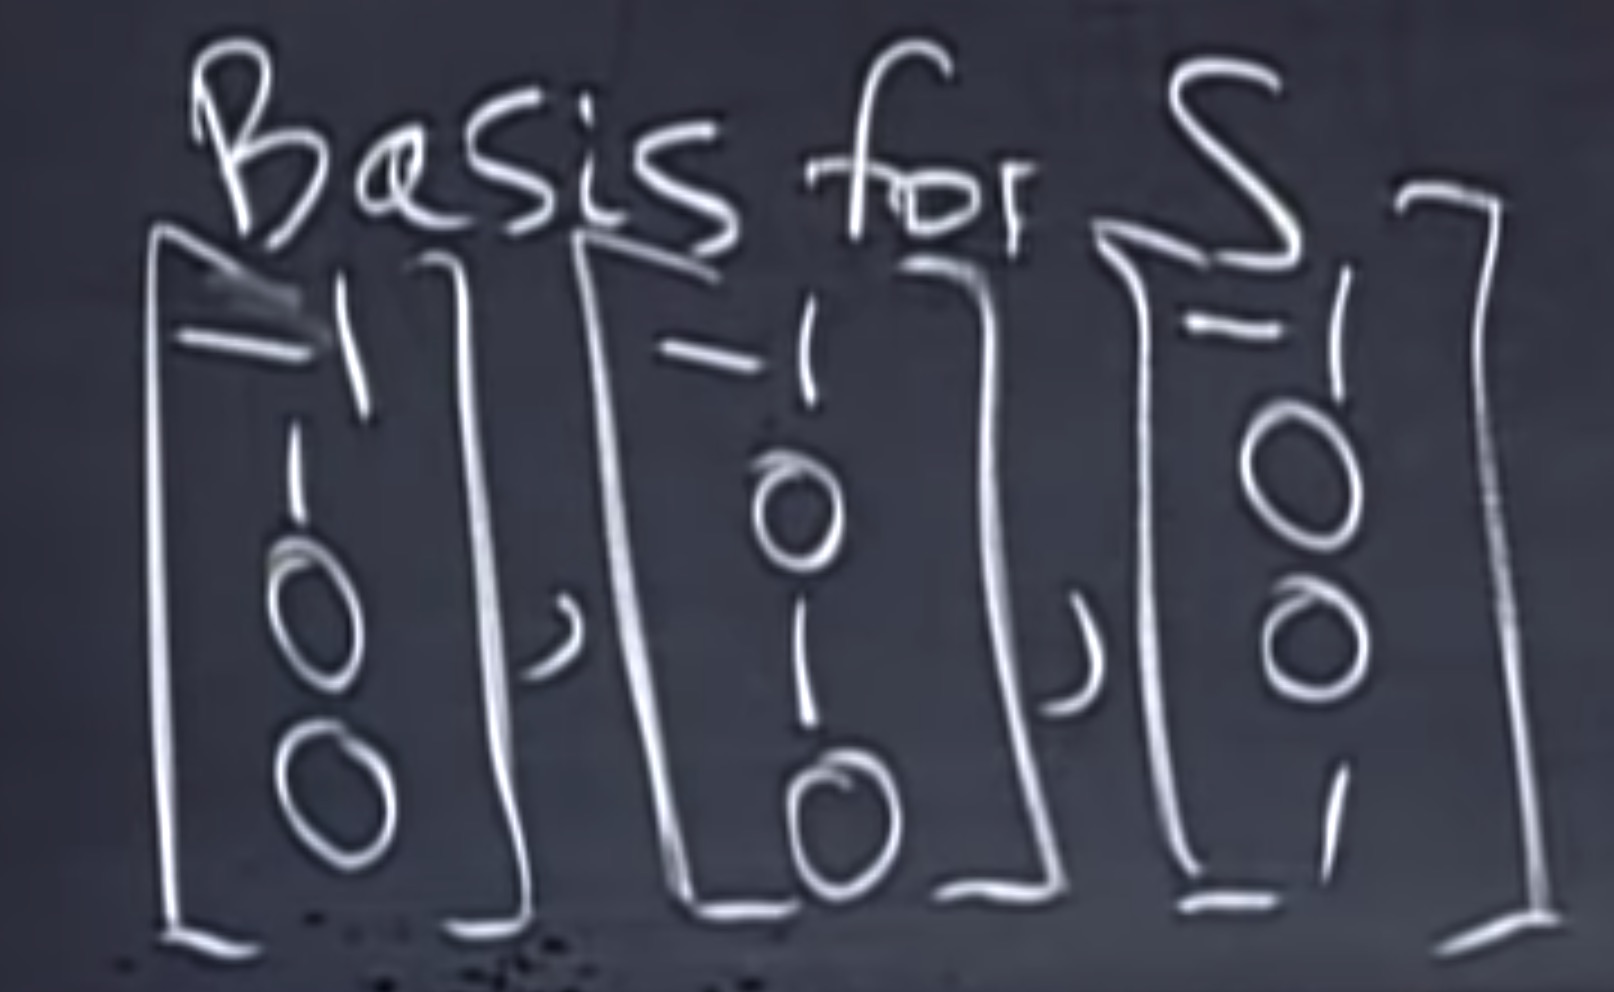 Basis for S
[-1 [-1 [-1
1 0 0
0 , 1 , 0
0] 0] 1]